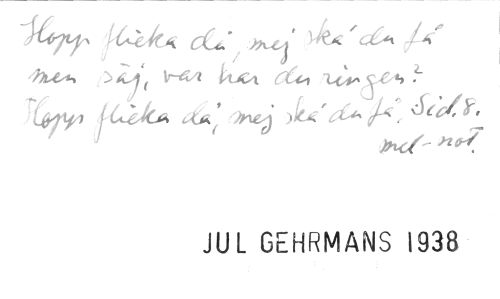 Hopp flicka då, mej ska' du få
men säj, var har du ringen?
Hopp flicka då, mej ska' du få. Sid. 8.
mel-not.
JUL GEHRMANS 1938